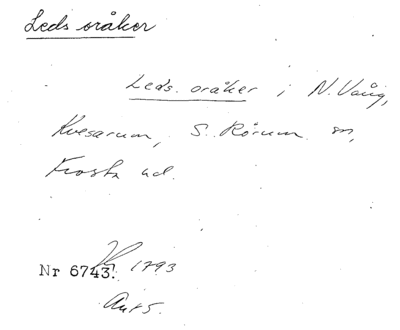 Leds oråker
Leds. oråker i N. Vång,
Kvesarum, S. Rörum sn,
Frosta hd.
Nr 6743. 1793